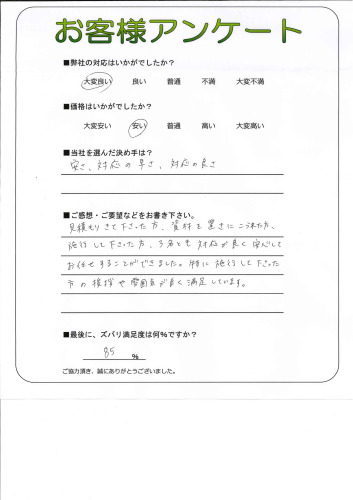 お客様アンケート
■弊社の対応はいかがでしたか？
大変良い 良い 普通 不満 大変不満
■価格はいかがでしたか？
大変安い 安い 普通 高い 大変高い
■当社を選んだ決め手は？
安さ、対応の早さ、対応の良さ
■ご感想・ご要望などをお書き下さい。
見積もりきて下さった方、資材を置きにこられた方、
施行して下さった方、3名とも対応が良く安心して
お任せすることができました。特に施行して下さった
方の挨拶や雰囲気が良く満足しています。
■最後に、ズバリ満足度は何％ですか？
85 ％
ご協力頂き、誠にありがとうございました。